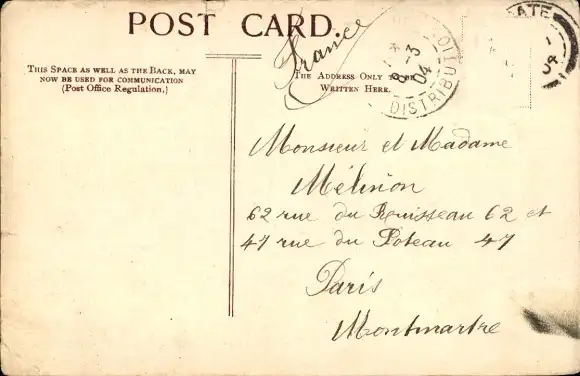 POST CARD.
THIS SPACE AS WELL AS THE BACK, MAY
NOW BE USED FOR COMMUNICATION
(Post Office Regulation.)
France
THE ADDRESS ONLY TO BE
WRITTEN HERE.
8-3
04
DISTRIBUTIO
Monsieur et Madame
Mélinon
62 rue du Ruisseau 62 et
47 rue du Poteau 47
Paris
Montmartre